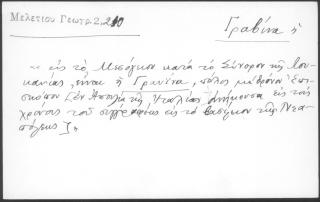 Μελετίου Γεωγρ. 2, 210
Γραβίνα ἡ
« εἰς τὸ Μεσόγειον κατὰ τὸ Σύνορον τῆς Λου-
κανίας, εἶναι ἡ Γραβίνα, πόλις μὲ θρόνον Ἐπι-
σκόπου [ἐν Ἀπουλίᾳ τῆς Ἰταλίας ἀνήκουσα εἰς τοὺς
χρόνους τοῦ συγγραφέως εἰς τὸ βασίλειον τῆς Νεα-
πόλεως]»